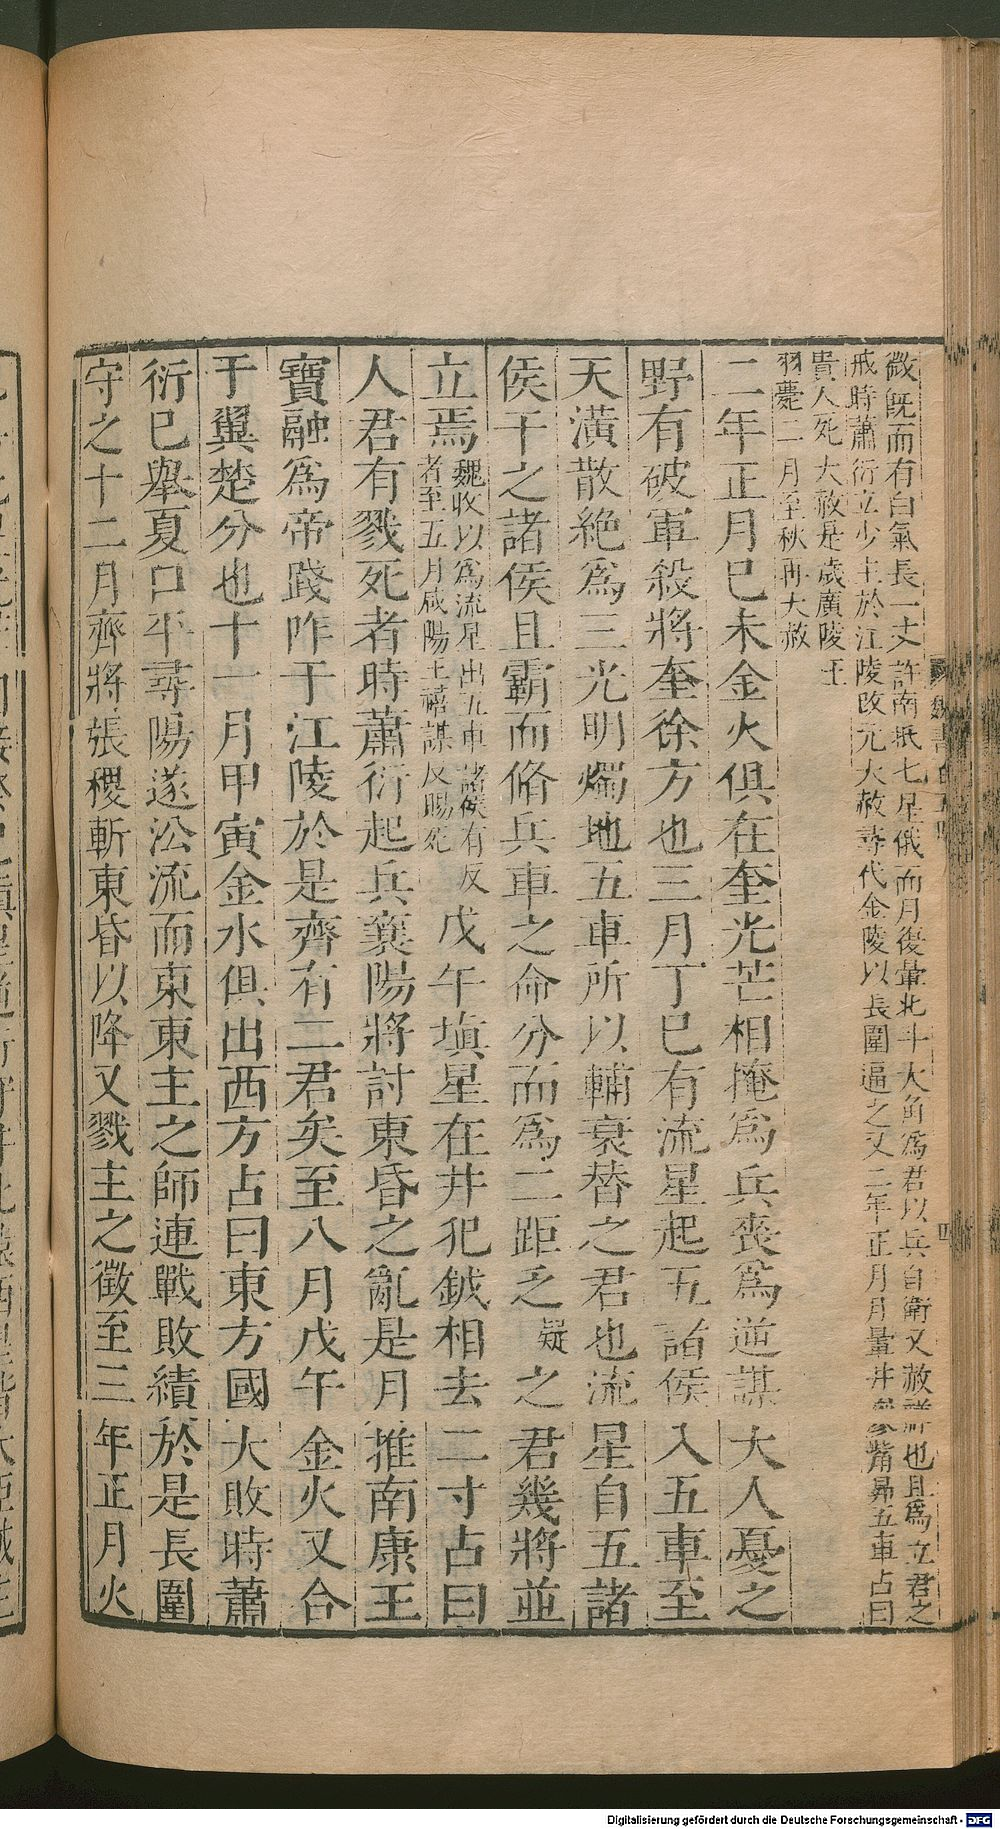 微既而有白氣長一丈許南抵七星俄而月復暈北斗大角為君以兵自衛又赦祥也且為立君之
戒時蕭衍立少主於江陵改元大赦尋代金陵以長圍逼之又二年正月月暈井參觜昴五車占曰
貴人死大赦是歲廣陵王
羽薨二月至秋再大赦
二年正月已未金火俱在奎光芒相掩為兵喪為逆謀大人憂之
野有破軍殺將奎徐方也三月丁巳有流星起五諸侯入五車至
天潢散絕為三光明燭地五車所以輔衰替之君也流星自五諸
侯干之諸侯且霸而脩兵車之命分而為二距乏疑之君幾將並
立焉魏收以為流星出五車諸侯有反
者至五月咸陽王禧謀反賜死戊午填星在井犯鉞相去二寸占曰
人君有戮死者時蕭衍起兵襄陽將討東昏之亂是月推南康王
寶融為帝踐咋于江陵於是齊有二君矣至八月戊午金火又合
于翼楚分也十一月甲寅金水俱出西方占曰東方國大敗時蕭
衍已舉夏口平尋陽遂㳂流而東東主之師連戰敗績於是長圍
守之十二月齊將張稷斬東昏以降又戮主之徵至三年正月火
四
Digitalisierung gefördert durch die Deutsche Forschungsgemeinschaft - DFG